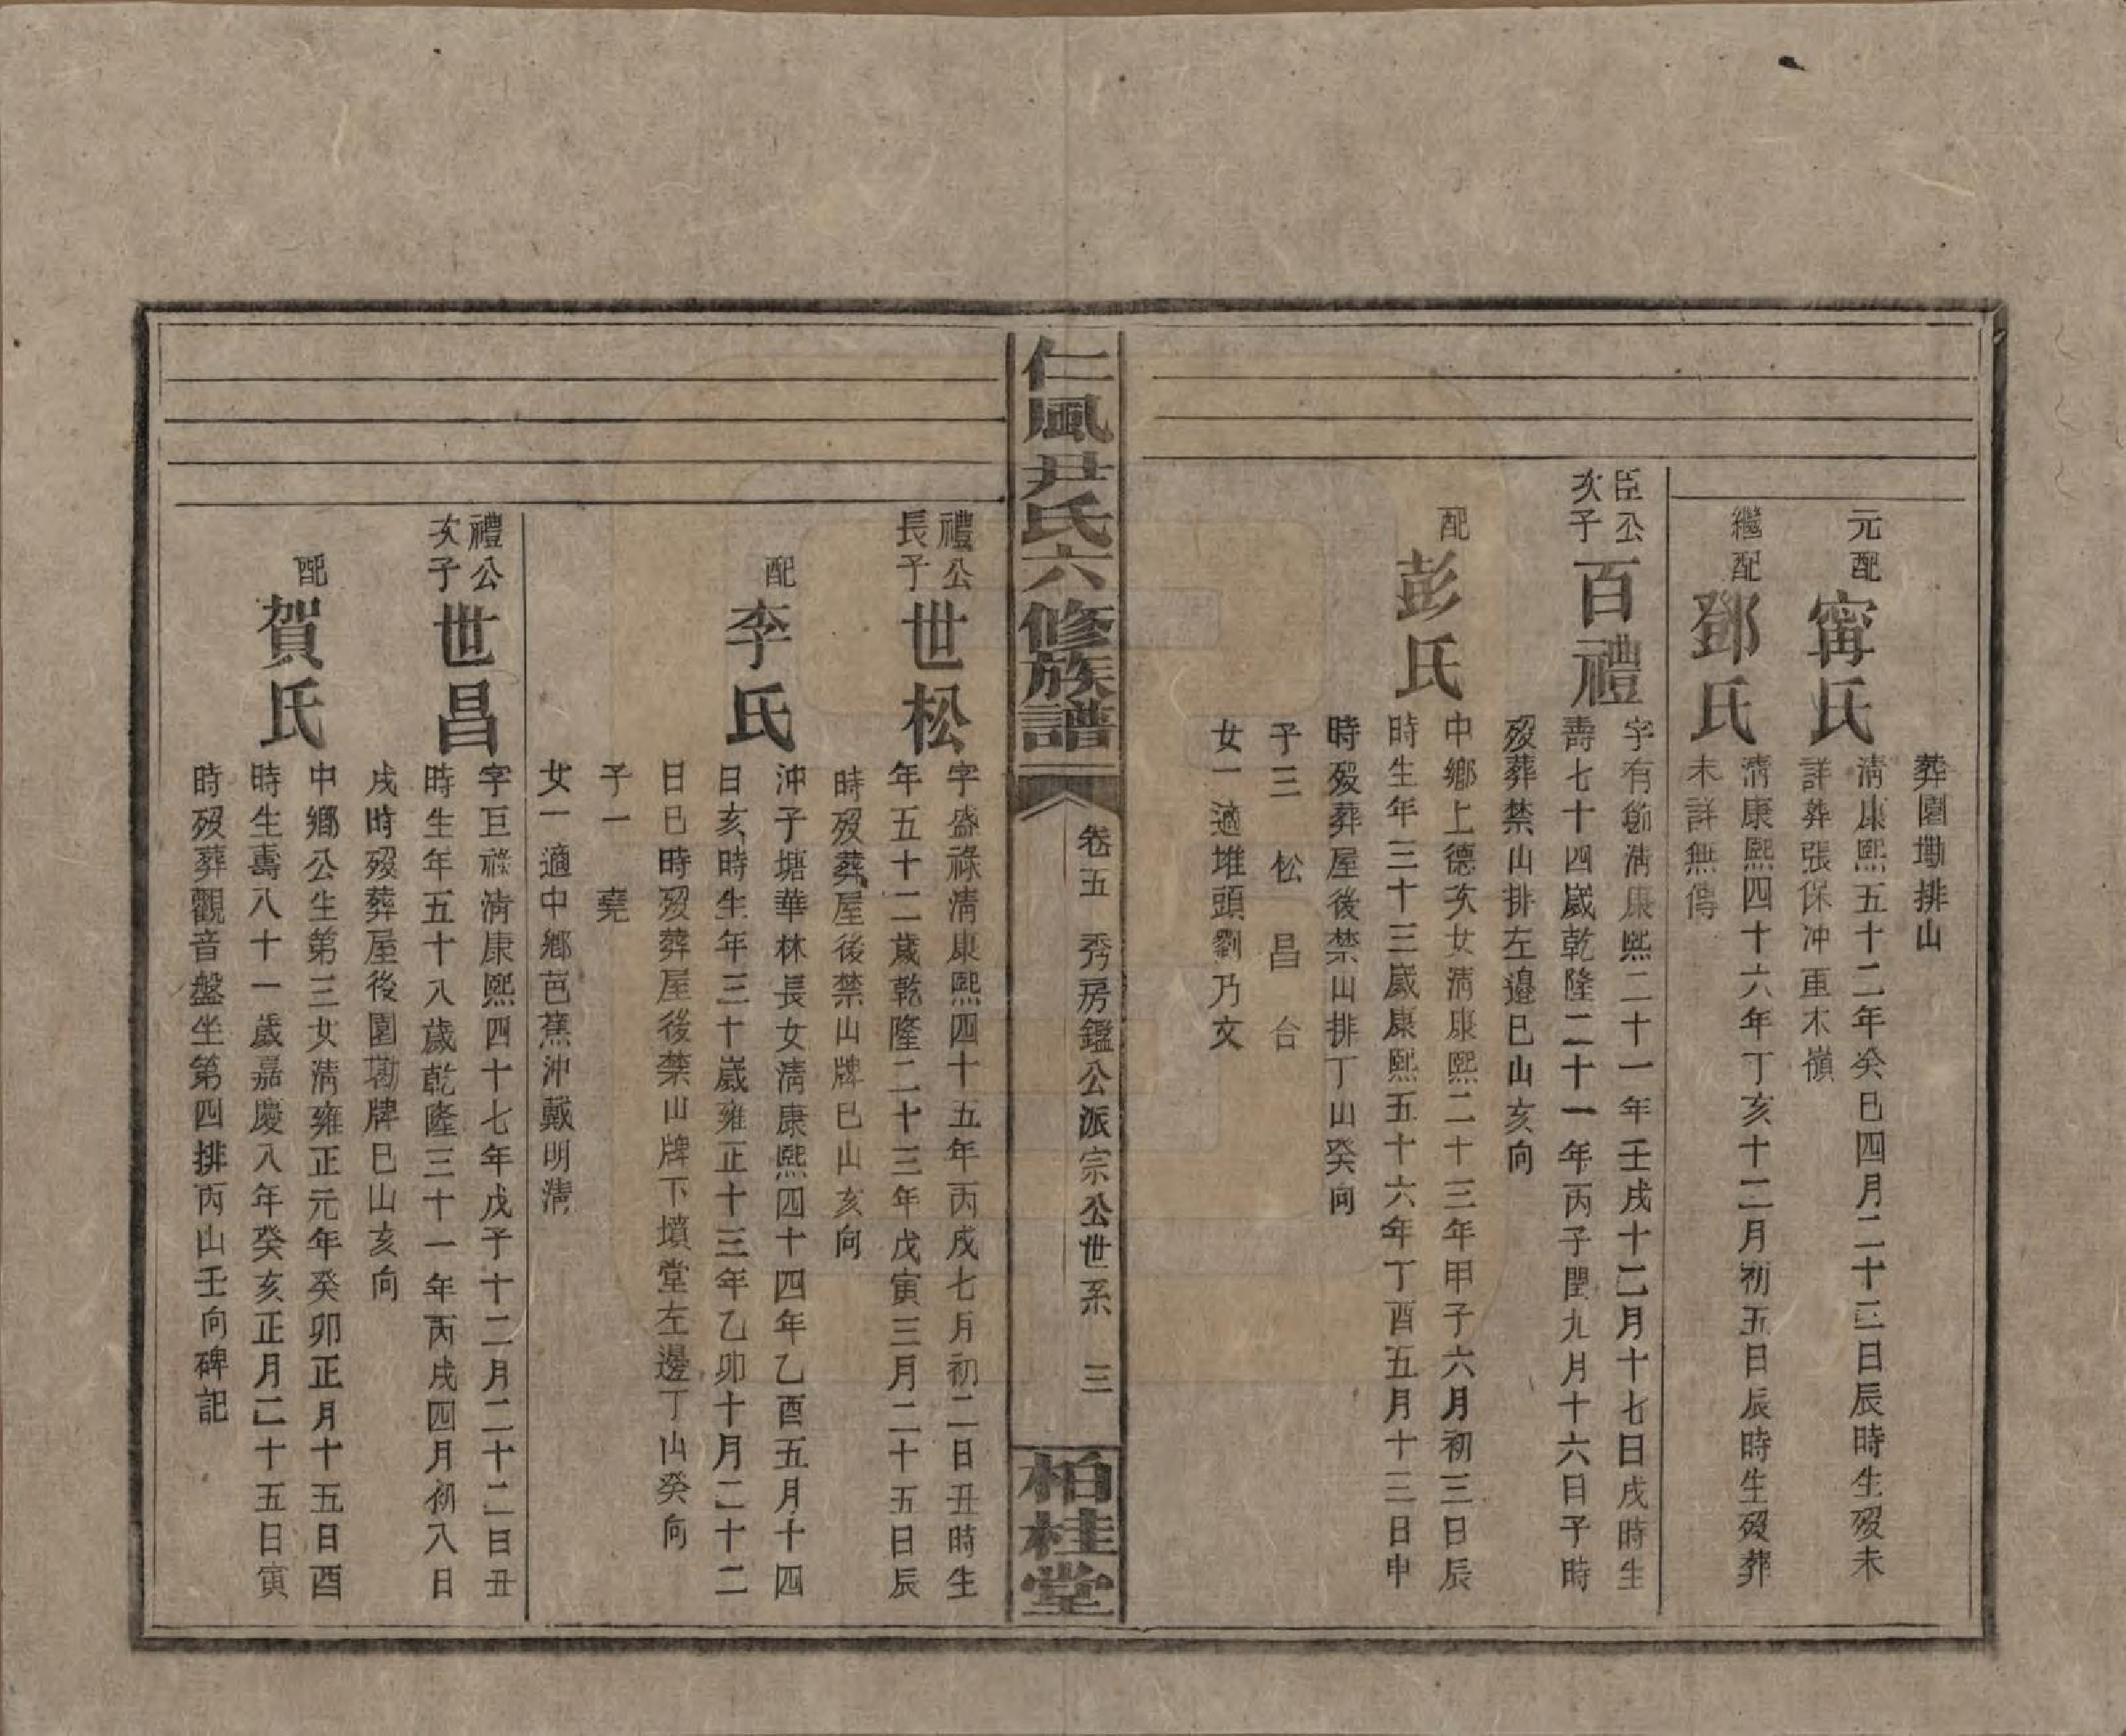 葬園墈排山
元配
甯氏
清康熙五十二年癸巳四月二十三日辰時生歿未
詳葬張保冲重木嶺
繼配
鄧氏
清康熙四十六年丁亥十二月初五日辰時生歿葬
未詳無傳
臣公
次子
百禮
字有節清康熙二十一年壬戌十二月十七日戌時生
壽七十四歲乾隆二十一年丙子閏九月十六日子時
歿葬禁山排左邉巳山亥向
配
彭氏
中鄉上德次女清康熙二十三年甲子六月初三日辰
時生年三十三歲康熙五十六年丁酉五月十三日申
時歿葬屋後禁山排丁山癸向
子三 松 昌 台
女一適堆頭劉乃文
仁風尹氏六修族譜
卷五 秀房鑑公派宗公世系 三
柏桂堂
禮公
長子
世松
字盛祿清康熙四十五年丙戌七月初二日丑時生
年五十二歲乾隆二十三年戊寅三月二十五日辰
時歿葬屋後禁山牌巳山亥向
配
李氏
沖子塘華林長女清康熙四十四年乙酉五月十四
日亥時生年三十歲雍正十三年乙卯十月二十二
日巳時歿葬屋後禁山牌下墳堂左邊丁山癸向
子一 堯
女一適中鄉芭蕉沖戴明清
禮公
次子
世昌
字巨祿清康熙四十七年戊子十二月二十二日丑
時生年五十八歲乾隆三十一年丙戌四月初八日
戌時歿葬屋後園墈牌巳山亥向
配
賀氏
中鄉公生第三女清雍正元年癸卯正月十五日酉
時生壽八十一歲嘉慶八年癸亥正月二十五日寅
時歿葬觀音盤坐第四排丙山壬向碑記